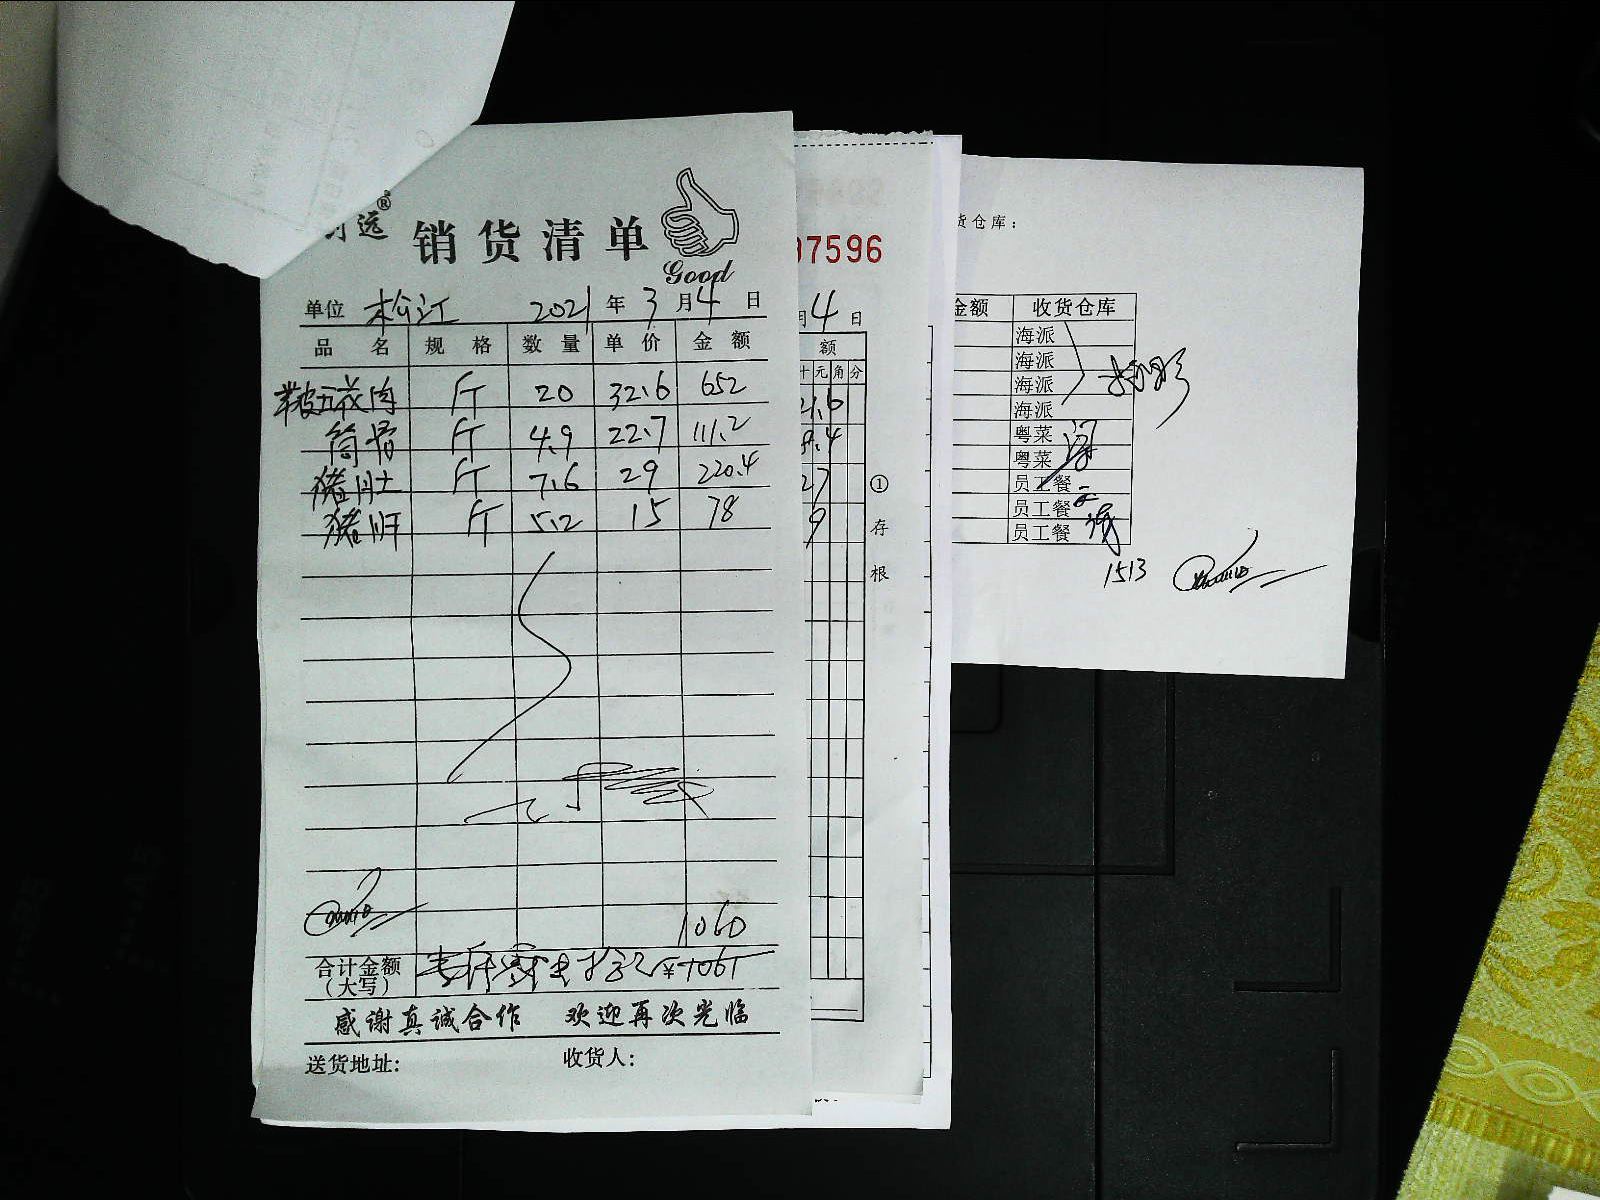 远®
销货清单
Good
单位 松江 2021年3月4日
品名 规格 数量 单价 金额
带皮五花肉 斤 20 32.6 652
筒骨 斤 4.9 22.7 111.2
猪肚 斤 7.6 29 220.4
猪肝 斤 5.2 15 78
1060
合计金额
(大写) ¥1061
感谢真诚合作 欢迎再次光临
送货地址: 收货人:
97596
月4日
额
十元角分
①存根
货仓库:
金额 收货仓库
海派
海派
海派
海派
粤菜
粤菜
员工餐
员工餐
员工餐
1513